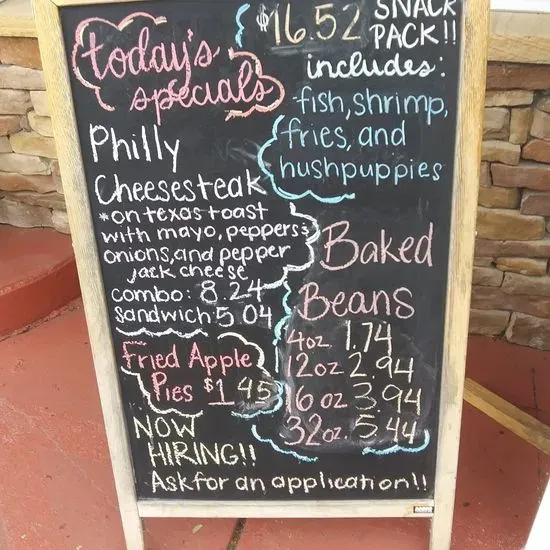 today's
specials
Philly
Cheesesteak
*on texas toast
with mayo, peppers
onions, and pepper
jack cheese
combo: 8.24
sandwich 5 04
Fried Apple
Pies $1 45
NOW
HIRING!!
Ask for an application!!
$16.52 SNACK
PACK!!
includes:
fish, shrimp,
fries, and
hushpuppies
Baked
Beans
4oz 1.74
12oz 2.94
16 oz 3.94
32oz. 5.44